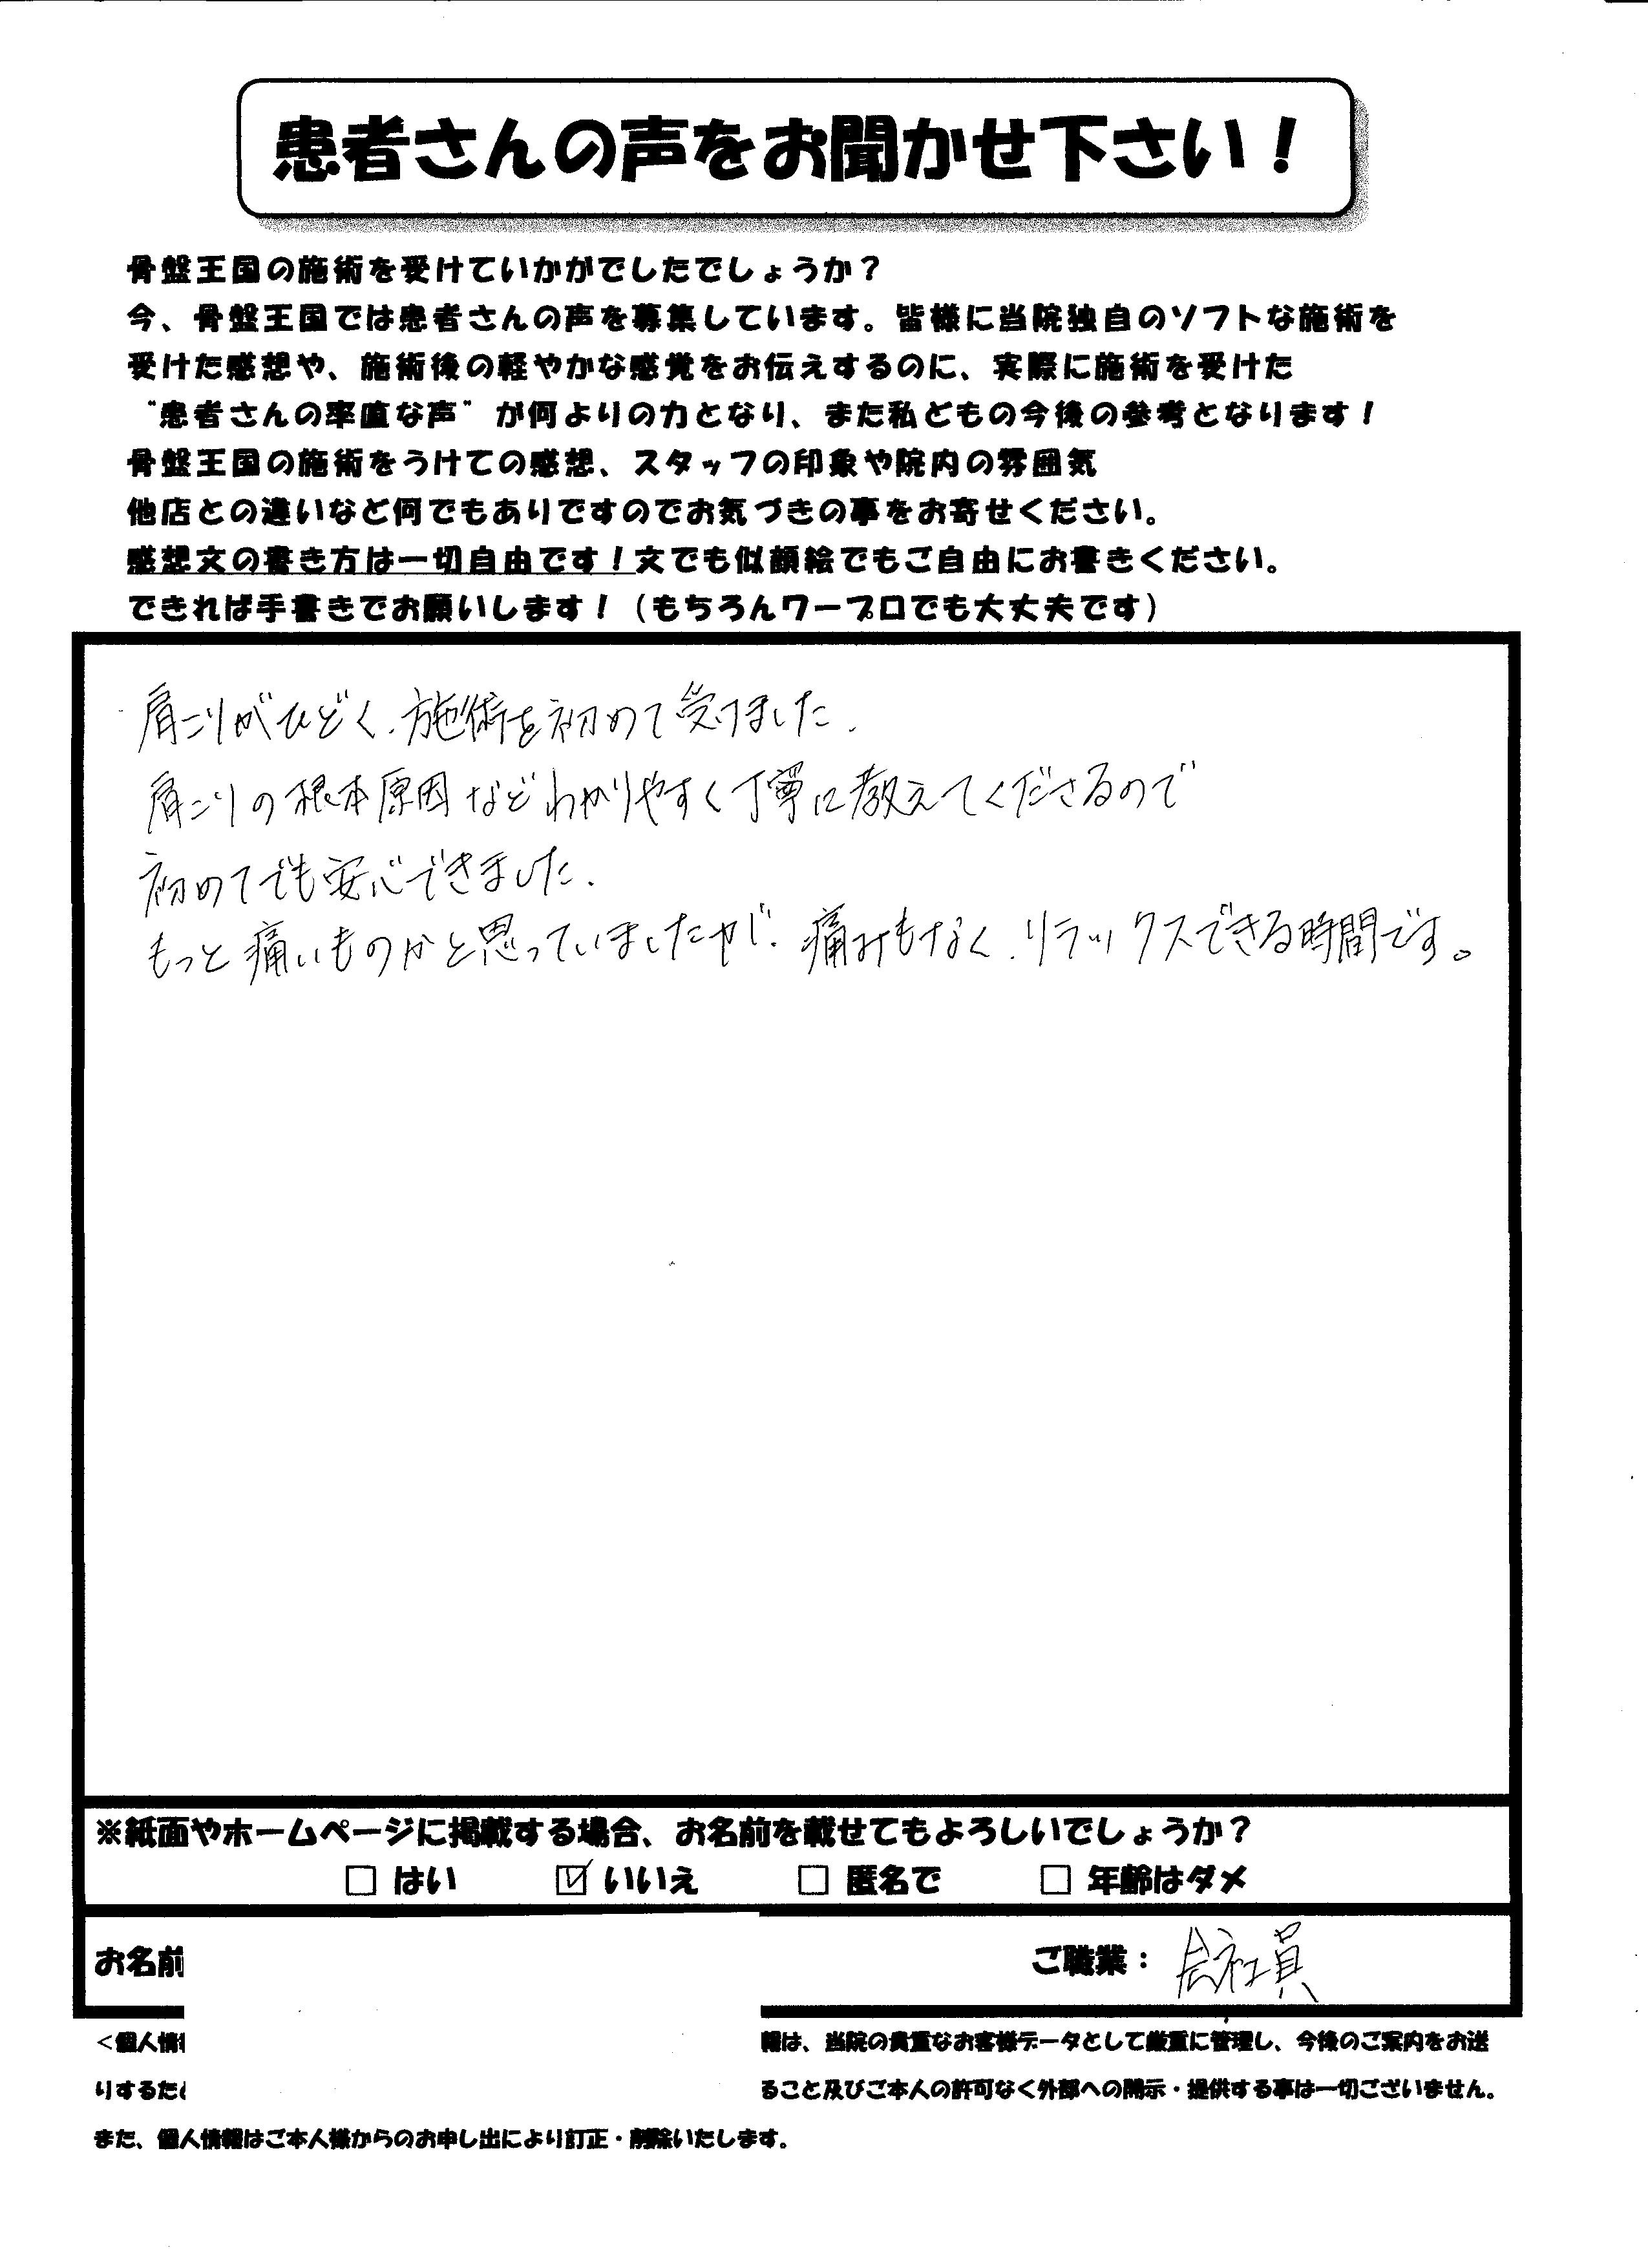 患者さんの声をお聞かせ下さい！
骨盤王国の施術を受けていかがでしたでしょうか？
今、骨盤王国では患者さんの声を募集しています。皆様に当院独自のソフトな施術を
受けた感想や、施術後の軽やかな感覚をお伝えするのに、実際に施術を受けた
“患者さんの率直な声”が何よりの力となり、また私どもの今後の参考となります！
骨盤王国の施術をうけての感想、スタッフの印象や院内の雰囲気
他店との違いなど何でもありですのでお気づきの事をお寄せください。
感想文の書き方は一切自由です！文でも似顔絵でもご自由にお書きください。
できれば手書きでお願いします！（もちろんワープロでも大丈夫です）
肩こりがひどく、施術を初めて受けました。
肩こりの根本原因などわかりやすく丁寧に教えてくださるので
初めてでも安心できました。
もっと痛いものかと思っていましたが、痛みもなく、リラックスできる時間です。
※紙面やホームページに掲載する場合、お名前を載せてもよろしいでしょうか？
□ はい ☑ いいえ □ 匿名で □ 年齢はダメ
お名前 ご職業： 会社員
＜個人情 報は、当院の貴重なお客様データとして厳重に管理し、今後のご案内をお送
りするた ること及びご本人の許可なく外部への開示・提供する事は一切ございません。
また、個人情報はご本人様からのお申し出により訂正・削除いたします。